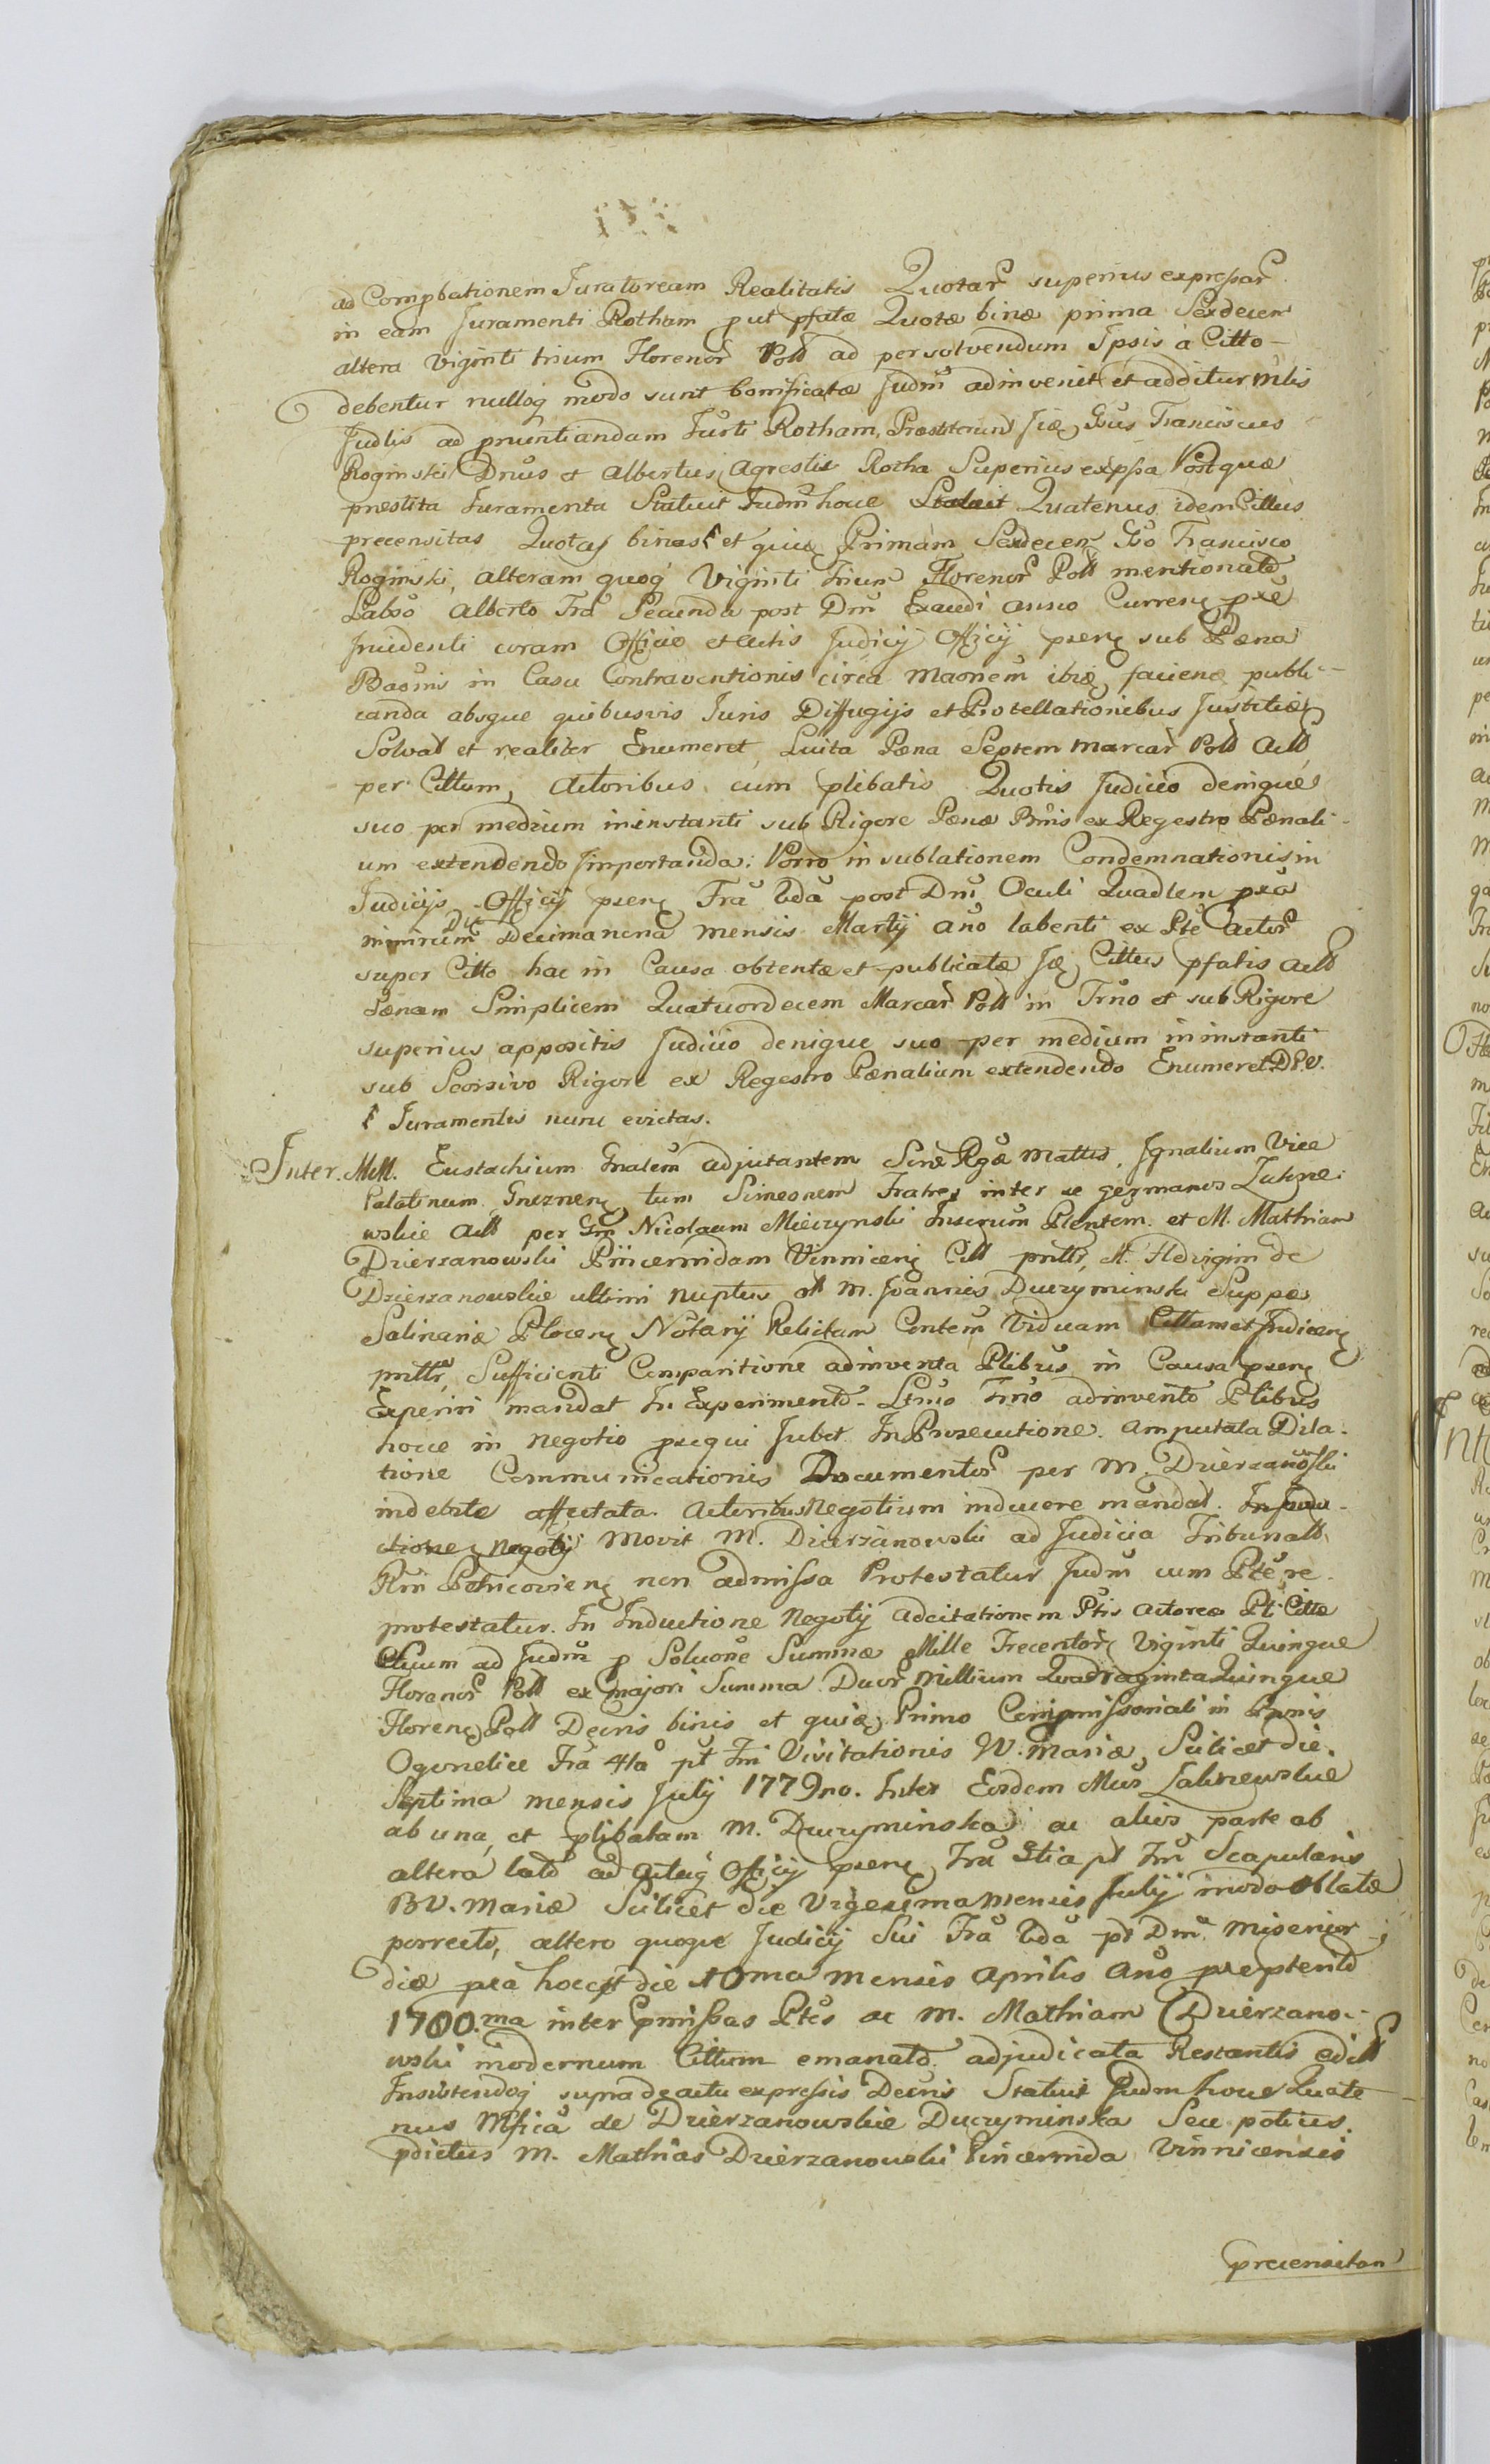 ad Compbationem Juratoream Realitatis Quotar superius expressar
in eam Juramenti Rotham put pfatæ Quotæ binæ prima Sexdecem
altera Viginti trium Florenor Poll ad persolvendum Ipsis à Citto
debentur nulloq modo sunt bonificatæ Judm adinvenit et additur Mlis
Judlis ad pnuntiandam Jurti Rotham, Præstiterunt Gsus Franciscus
Roginski Dnus et Albertus Agrestis Rotha Superius expssa Post quæ
præstita Juramenta Statuit Judm hocce Quatenus idem Cittus
precensitas Quotas binas et quidē Primam Sexdecem Gso Francisco
Roginski, alteram quoq Viginti trium Florenor Poll mentionato
Laboso Alberto Fra Secunda post Dm Exaudi anno Curren pxe
Incidenti coram Officio et Actis Judicij Officij præn sub Pæna
Baōnis in Casu Contraventionis circa Maōnem ibid facien publi-
canda absque quibusvis Juris Diffugijs et Protellationibus Justitiæ
Solvat et realiter Enumeret, Luita Pæna Septem Marcar Poll Actt
per Cittum, Actoribus cum plibatis Quotis Judicio denique
suo per medium in instanti sub Rigore Pænæ Bnis ex Regestro Pænali-
um extendendo importanda: Porro in sublationem Condemnationis in
Judicijs Officij præn Fra 2da post Dm Oculi Quadlem pxa
nimirum Die Decimanona Mensis Martij año labenti ex Pte Actor
super Citto hac in Causa obtentæ et publicatæ Id Cittus pfatis Actt
Pænam Simplicem Quatuordecem Marcar Poll in Trno et sub Rigore
superius appositis Judicio denique suo per medium in instanti
sub Seorsivo Rigore ex Regestro Pænalium extendendo Enumeret D.P.V.
Juramentis nunc evictas.
Inter. MM. Eustachium Gnalem adjutantem Scræ Rgæ Mattis, Ignatium Vice
Palatinum Gneznen tum Simeonem Fratres inter se germanos Zakrze-
wskie Actt per Gm Nicolaum Mieczynski Plentem et M. Mathiam
Dzierzanowski Pincernidam Vinnicen Citt pnttr, M. Hedvigim de
Dzierzanowskie ultimi Nuptus M. Joannis Duczyminski Suppæ
Salinariæ Plocen Notarij Relictam Viduam Cittam et Judicen
pnttr, Sufficienti Comparitione adinventa Ptibus in Causa præn
Experiri mandat In Experimento Ltmo Trno adinvento Ptibus
hocce in Negotio psequi Jubet In Prosecutione. Amputata Dila-
tione Communicationis Documentor per M. Dzierzanoski
indebite affectata. Actoribus Negotium inducere mandat. In Indu-
ctione Negotij Movit M. Dzierzanowski ad Judicia Tribunalt
Rni Petricovien non admissa Protestatur Judm cum Pte re-
protestatur. In Inductione Negotij Adcitationem Ptis Actoreæ Pt Cittæ
ad Judm p Soluone Summæ Mille Trecentor Viginti Quinque
Florenor Poll ex majori Summa Duor Millium Quadraginta Quinque
Floren Poll Decris binis et quidē Primo Compromissoriali in Bonis
Ogonelice Fra 4ta pt Fm Visitationis B.V. Mariæ, Scilicet die
Septima mensis Julij 1779no. Inter Eosdem Mcos Zakrzewskie
ab una, et plibatam M. Duczyminska ac alios parte ab
altera lato ad Actaq Officij præn Fra 3tia pt Fm Scapularis
B.V. Mariæ Scilicet die Vigesima Mensis Julij modo oblatæ
porrecto, altero quoque Judicij Sui Fra 2da pt Dm Misericor-
diæ pxa hocest die 10ma Mensis Aprilis Año præpterito
1780.ma inter Pmissas Ptes ac M. Mathiam Dzierzano-
wski modernum Cittum emanato adjudicata Restantis
Insistendoq supra de actu expressis Decris Statuit Judm hocce Quate-
nus Mfica de Dzierzanowskie Duczyminska Seu potius
pdictus M. Mathias Dzierzanowski Pincernida Vinnicensis
precensitam